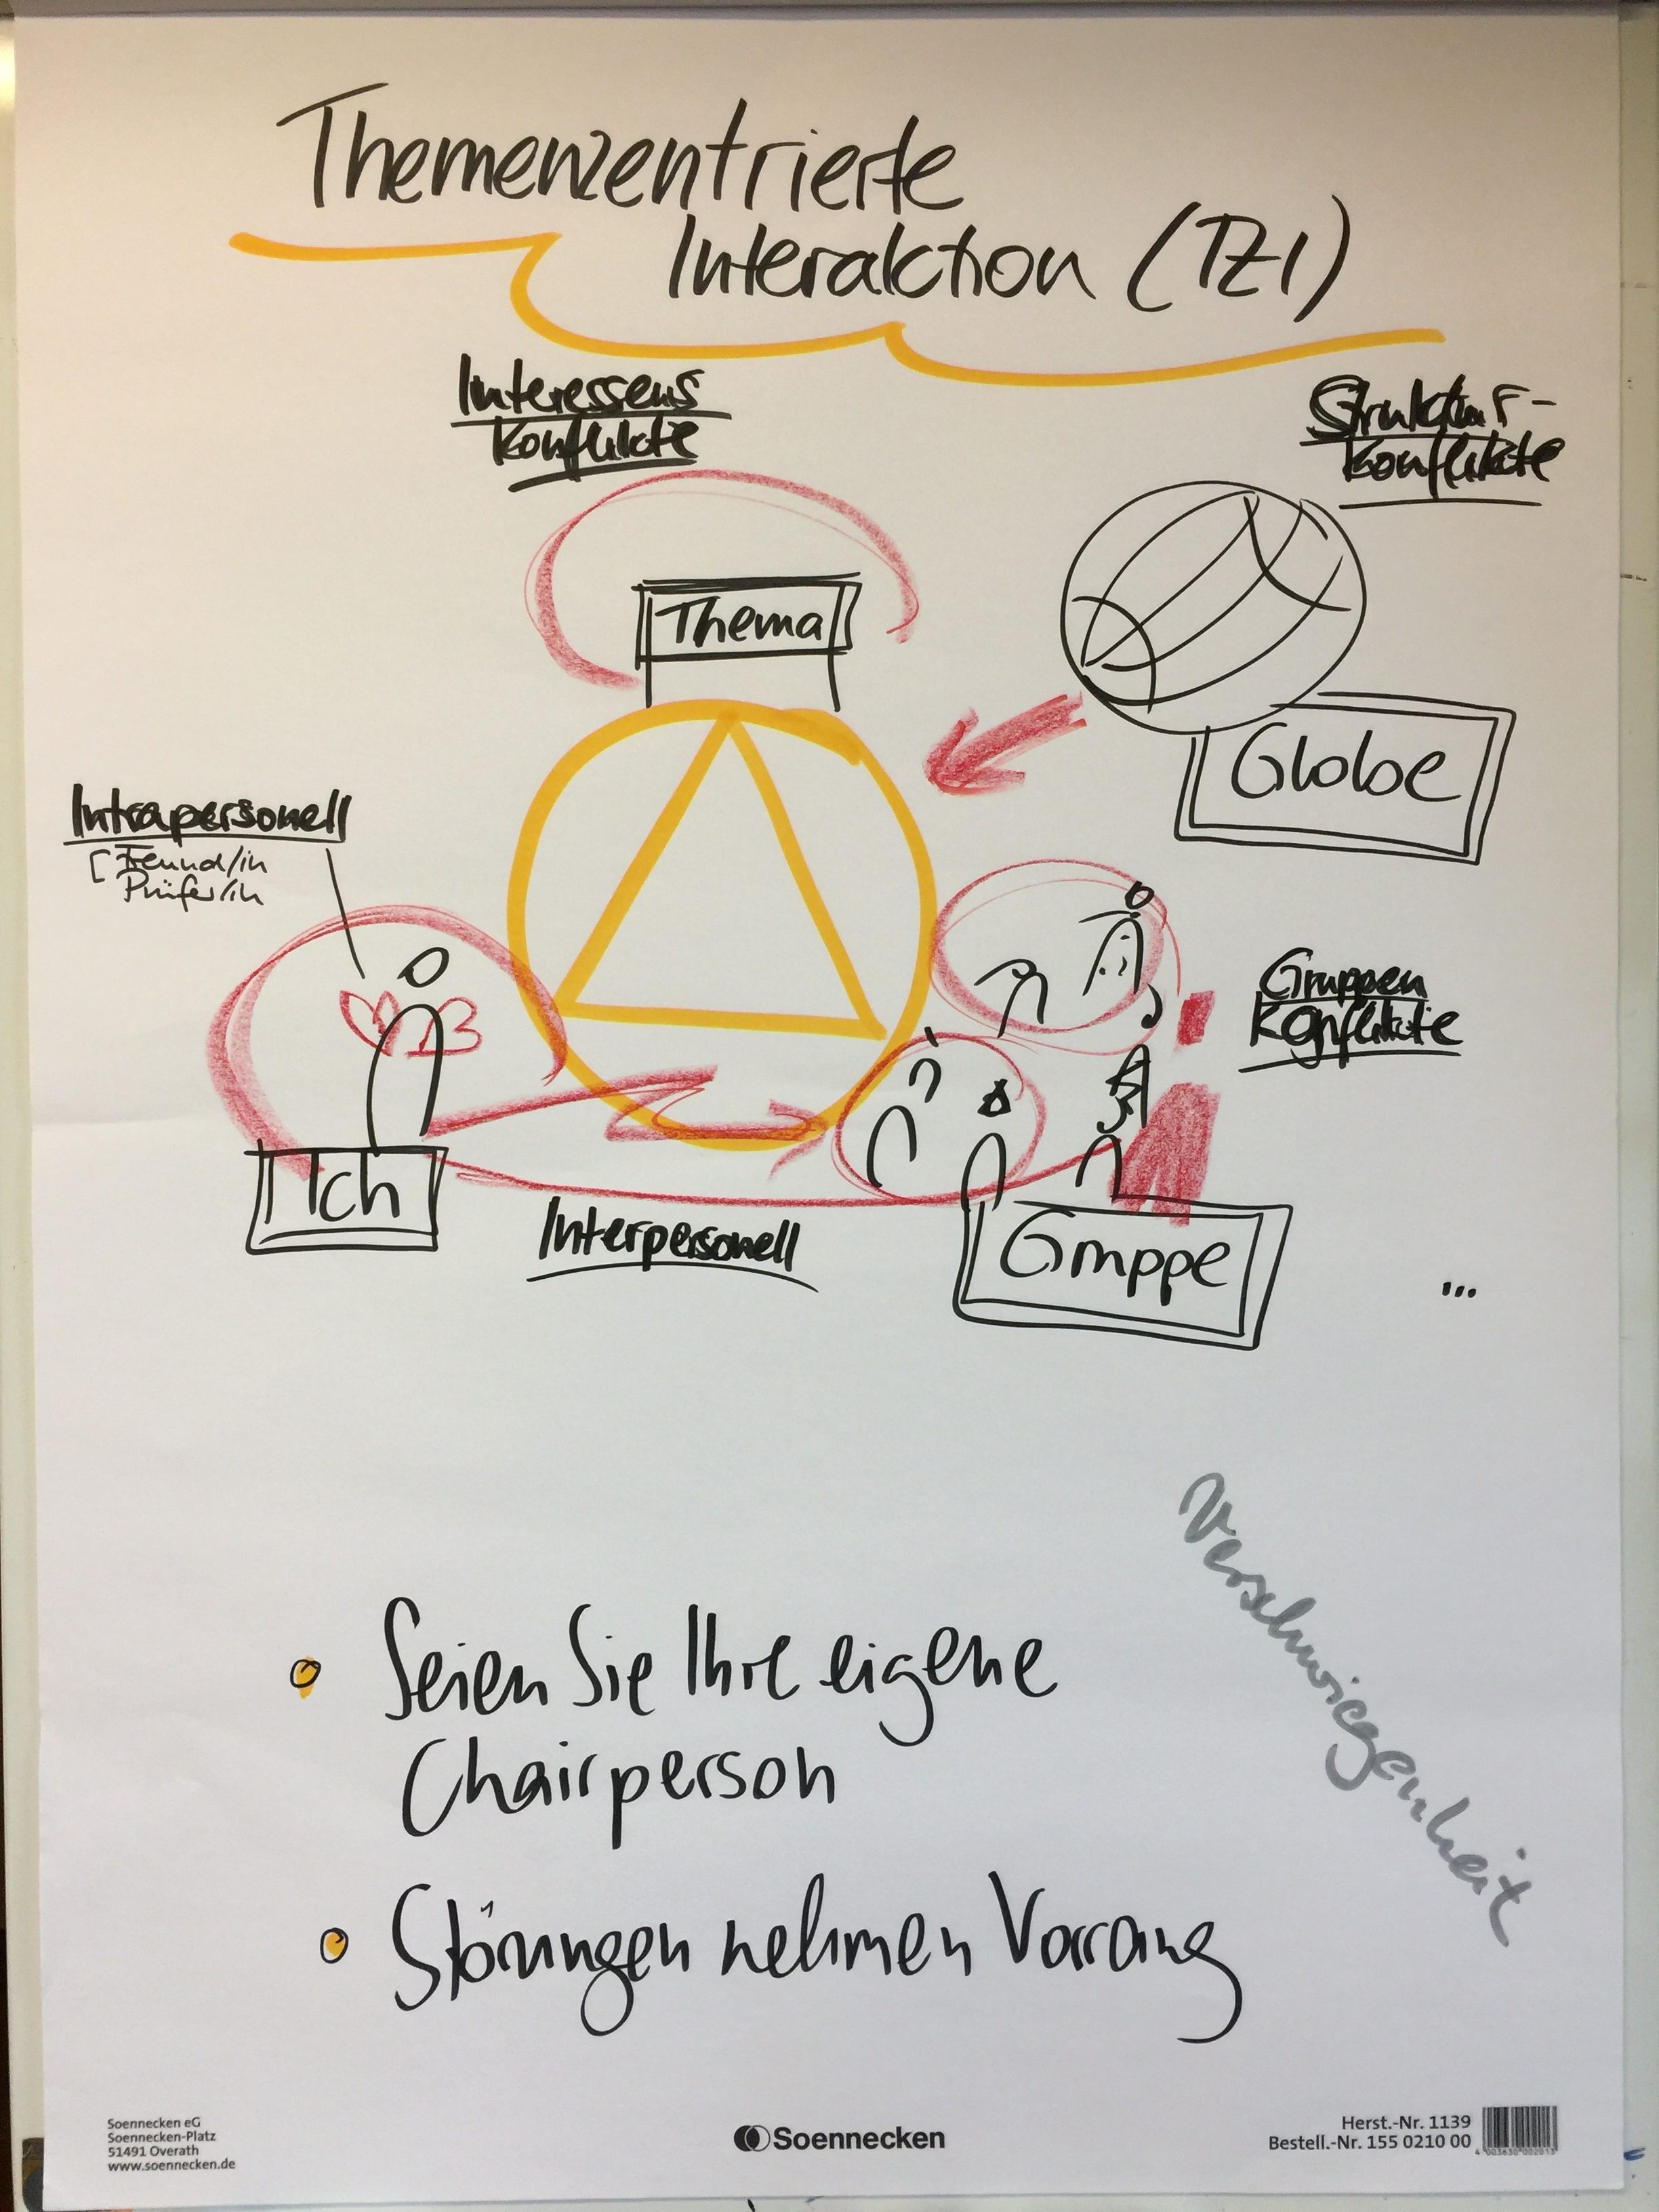 Themenzentrierte
Interaktion (TZI)
Interessens
Konflikte
Struktur-
Konflikte
Thema
Globe
Intrapersonell
[ Freund/in
Prüfer/in
Gruppen
Konflikte
Ich
Interpersonell
Gruppe
...
Verschwiegenheit
Seien Sie Ihre eigene
Chairperson
Störungen nehmen Vorrang
Soennecken eG
Soennecken-Platz
51491 Overath
www.soennecken.de
Soennecken
Herst.-Nr. 1139
Bestell.-Nr. 155 0210 00
4 003630 002013